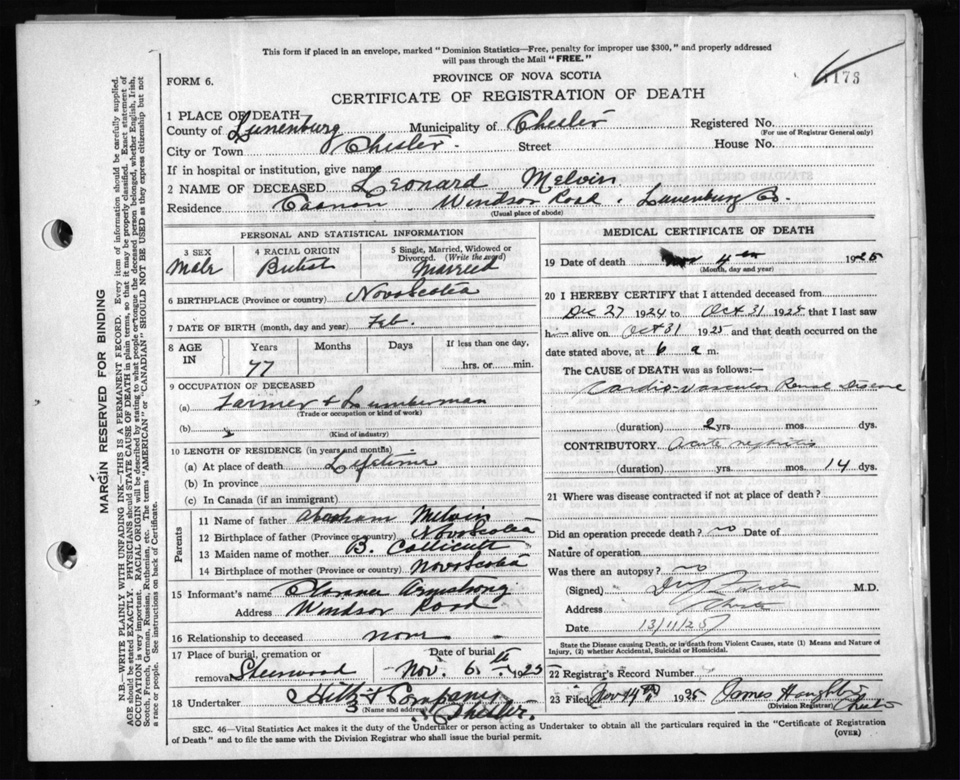 This form if placed in an envelope, marked "Dominion Statistics—Free, penalty for improper use $300," and properly addressed
will pass through the Mail "FREE."
FORM 6.
PROVINCE OF NOVA SCOTIA
1173
CERTIFICATE OF REGISTRATION OF DEATH
1 PLACE OF DEATH
County of Lunenburg Municipality of Chester Registered No.
(For use of Registrar General only)
City or Town Chester. Street House No.
If in hospital or institution, give name
2 NAME OF DECEASED Leonard Melvin
Residence Windsor Road, Lunenburg Co.
(Usual place of abode)
PERSONAL AND STATISTICAL INFORMATION
3 SEX Male
4 RACIAL ORIGIN British
5 Single, Married, Widowed or Divorced. (Write the word) Married
6 BIRTHPLACE (Province or country) Nova Scotia
7 DATE OF BIRTH (month, day and year) Feb.
8 AGE IN Years Months Days If less than one day,
77 hrs. or min.
9 OCCUPATION OF DECEASED
(a) Farmer & Lumberman
(Trade or occupation or kind of work)
(b)
(Kind of industry)
10 LENGTH OF RESIDENCE (in years and months)
(a) At place of death Lifetime
(b) In province
(c) In Canada (if an immigrant)
Parents
11 Name of father Abraham Melvin
12 Birthplace of father (Province or country) Nova Scotia
13 Maiden name of mother B. Collicutt
14 Birthplace of mother (Province or country) Nova Scotia
15 Informant's name Clarence Armstrong
Address Windsor Road
16 Relationship to deceased none
17 Place of burial, cremation or removal Sherwood
Date of burial Nov. 6th 1925
18 Undertaker & Company
(Name and address) Chester.
MEDICAL CERTIFICATE OF DEATH
19 Date of death Nov 4th 1925
(Month, day and year)
20 I HEREBY CERTIFY that I attended deceased from
Dec 27 1924 to Oct 31 1925 that I last saw
h alive on Oct 31 1925 and that death occurred on the
date stated above, at 6 a m.
The CAUSE of DEATH was as follows:
Cardio-Vascular Renal Disease
(duration) 2 yrs. mos. dys.
CONTRIBUTORY Acute nephritis
(duration) yrs. mos. 14 dys.
21 Where was disease contracted if not at place of death?
Did an operation precede death? no Date of
Nature of operation
Was there an autopsy? no
(Signed) M.D.
Address Chester
Date 13/11/25
State the Disease causing Death, or in death from Violent Causes, state (1) Means and Nature of
Injury, (2) whether Accidental, Suicidal or Homicidal.
22 Registrar's Record Number
23 Filed Nov 14th 1925 James
(Division Registrar) Chester
SEC. 46—Vital Statistics Act makes it the duty of the Undertaker or person acting as Undertaker to obtain all the particulars required in the "Certificate of Registration
of Death" and to file the same with the Division Registrar who shall issue the burial permit.
(OVER)
MARGIN RESERVED FOR BINDING
N.B.—WRITE PLAINLY WITH UNFADING INK—THIS IS A PERMANENT RECORD. Every item of information should be carefully supplied.
AGE should be stated EXACTLY. PHYSICIANS should STATE CAUSE OF DEATH in plain terms, so that it may be properly classified. Exact statement of
OCCUPATION is very important. RACIAL ORIGIN will be described by stating to what people or tongue the deceased person belonged, whether English, Irish,
Scotch, French, German, Russian, Ruthenian, etc. The terms "AMERICAN" or "CANADIAN" SHOULD NOT BE USED as they express citizenship but not
a race or people. See instructions on back of Certificate.